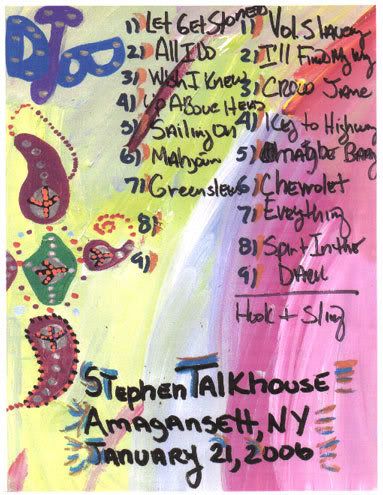 DTB
1) Let Get Stoned
2) All I Do
3) Wish I Knew
4) Up Above Head
5) Sailing On
6) Mahjoun
7)
8)
9)
1) Vol. Slavery
2) I'll Find My Way
3) Crow Jane
4) Key to Highway
5)
6) Chevrolet
7) Everything
8) Spirit In the
9) Dark
Hook + Sling
Stephen Talkhouse
Amagansett, NY
January 21, 2006